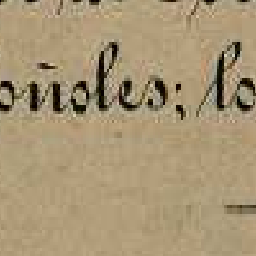 oñoles; lo